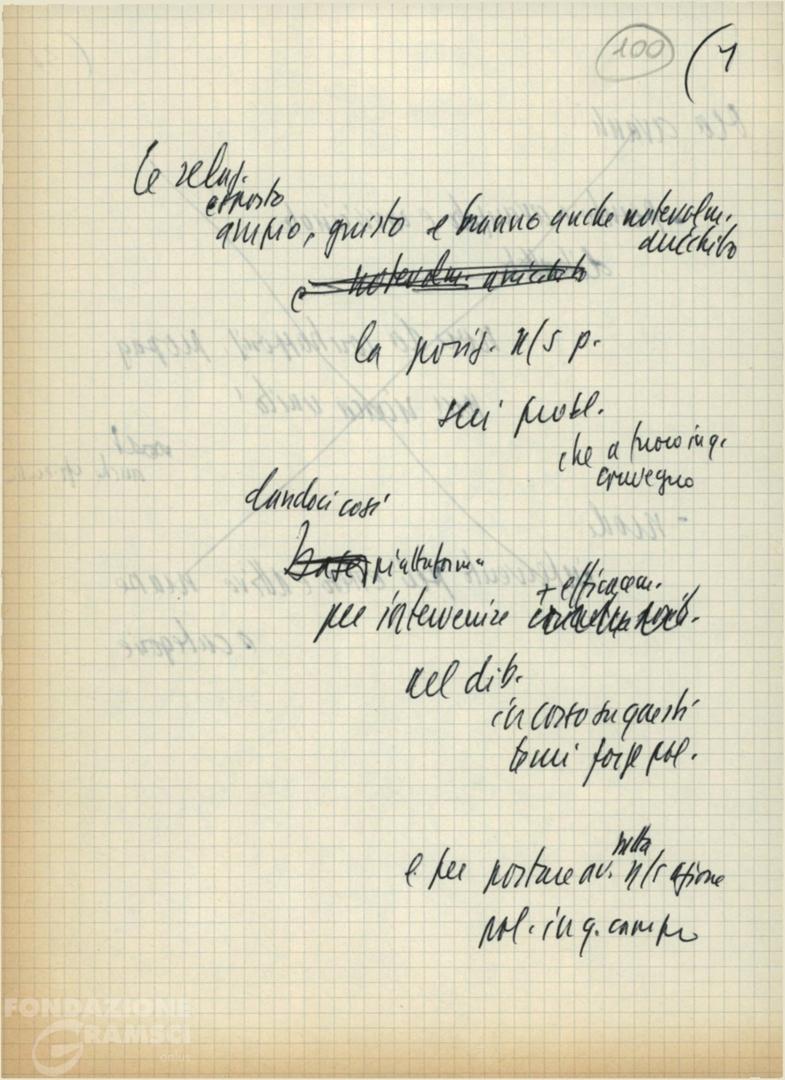 100 (1
Le relaz.
esposto
ampio, giusto e hanno anche notevolm.
arricchito
e notevolm. arricchito
la posiz. n/s p.
sui probl.
che a fuoco in q.
convegno
dandoci così
base piattaforma
+ efficacem.
per intervenire
nel dib.
in corso su questi
temi forze pol.
nella
e per portare av. n/s azione
pol. in q. campo
FONDAZIONE
GRAMSCI
onlus